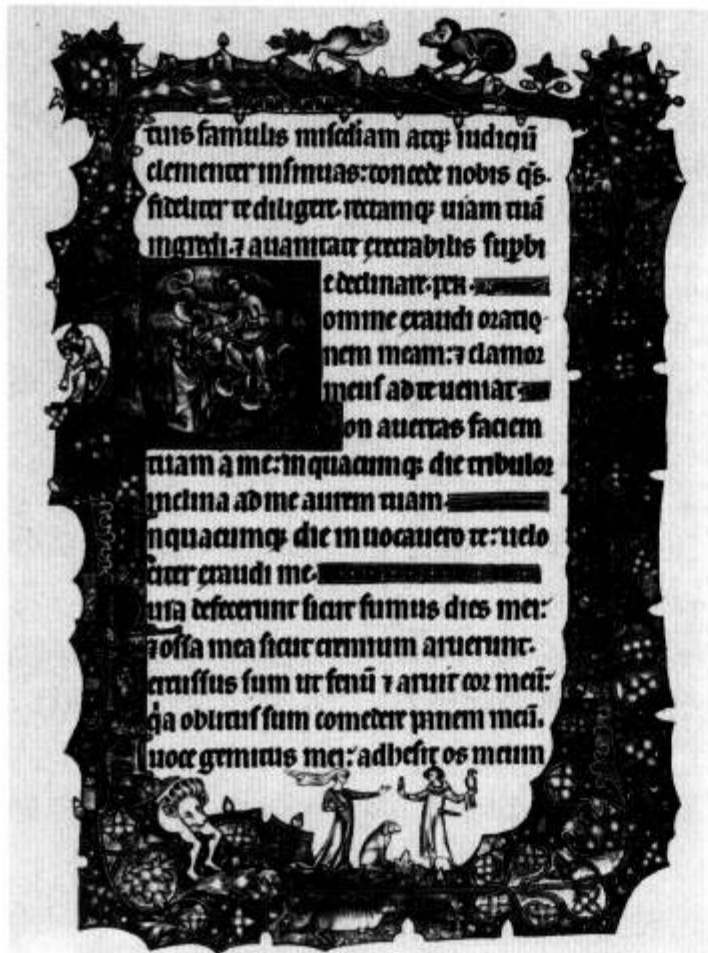 tuis famulis mis̄cdiam atq̢ iudiciū
clementer insinuas: concede nobis q̄s.
fideliter te diligere. rectamq̢ uiam tuā
ingredi. ⁊ a uanitate execrabilis sup̱bi
e declinare. per.
omine exaudi oratio
nem meam: ⁊ clamor
meus ad te ueniat
on auertas faciem
tuam a me: in quacumq̢ die tribulor
inclina ad me aurem tuam.
n quacumq̢ die inuocauero te: uelo
citer exaudi me.
uia defecerunt sicut fumus dies mei:
⁊ ossa mea sicut cremium aruerunt.
ercussus sum ut fenū ⁊ aruit cor meū:
q̄a oblitus sum comedere panem meū.
uoce gemitus mei: adhesit os meum